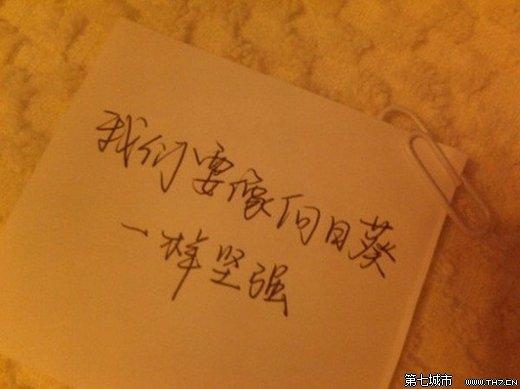 我们要像向日葵
一样坚强
第七城市 www.TH7.CN